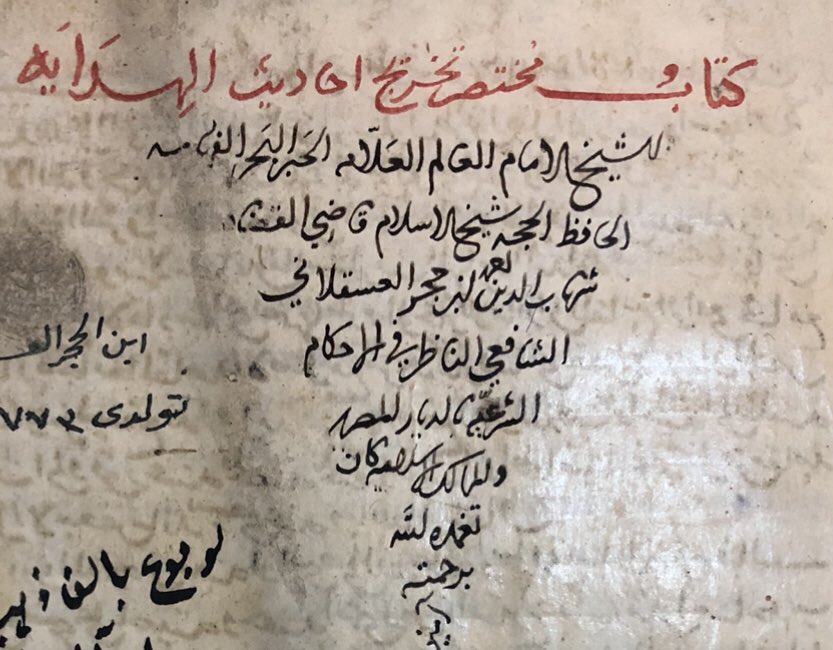 كتاب مختصر تخريج احاديث الهداية
للشيخ الامام العالم العلامه الحبر البحر الفهامه
الحافظ الحجه شيخ الاسلام قاضي القضاه
شهاب الدين احمد ابن حجر العسقلاني
الشافعي الناظر في الاحكام
الشرعيه بالديار المصريه
والممالك الاسلاميه كان
تغمده الله
برحمته
امين
ابن الحجر
تولدى ٧٧٣